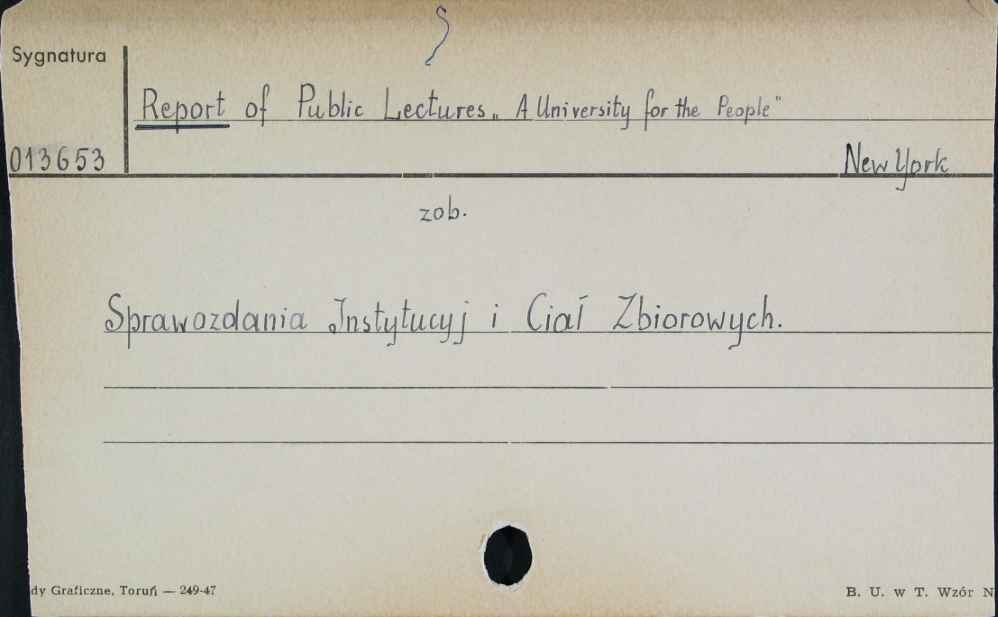 S
Sygnatura
Report of Public Lectures „A University for the People"
013653
New York
zob.
Sprawozdania Instytucyj i Ciał Zbiorowych.
dy Graficzne, Toruń — 249-47
B. U. w T. Wzór N